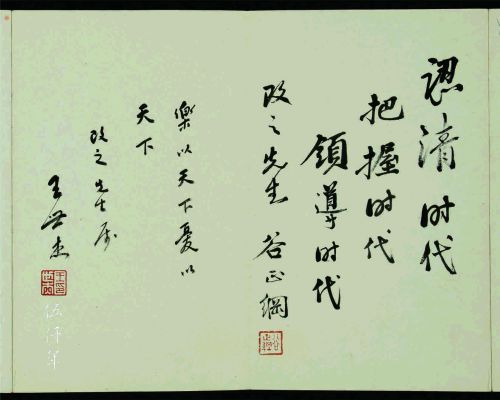 認清时代
把握时代
領導时代
政之先生 谷正綱
樂以天下憂以
天下
政之先生属
王世杰
伍仟年